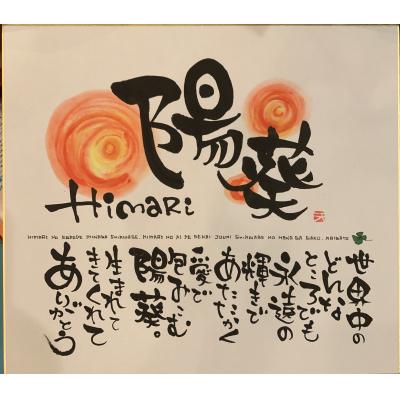 陽葵
Himari
HIMARI NO EGAODE MINNAGA SHIAWASE. HIMARI NO AI DE SEKAI JOUNI SHIAWASE NO HANA GA SAKU. ARIGATO
世界中の
どんな
ところでも
永遠の
輝きで
あたたかく
愛で
包みこむ
陽葵。
生まれて
きてくれて
ありがとう